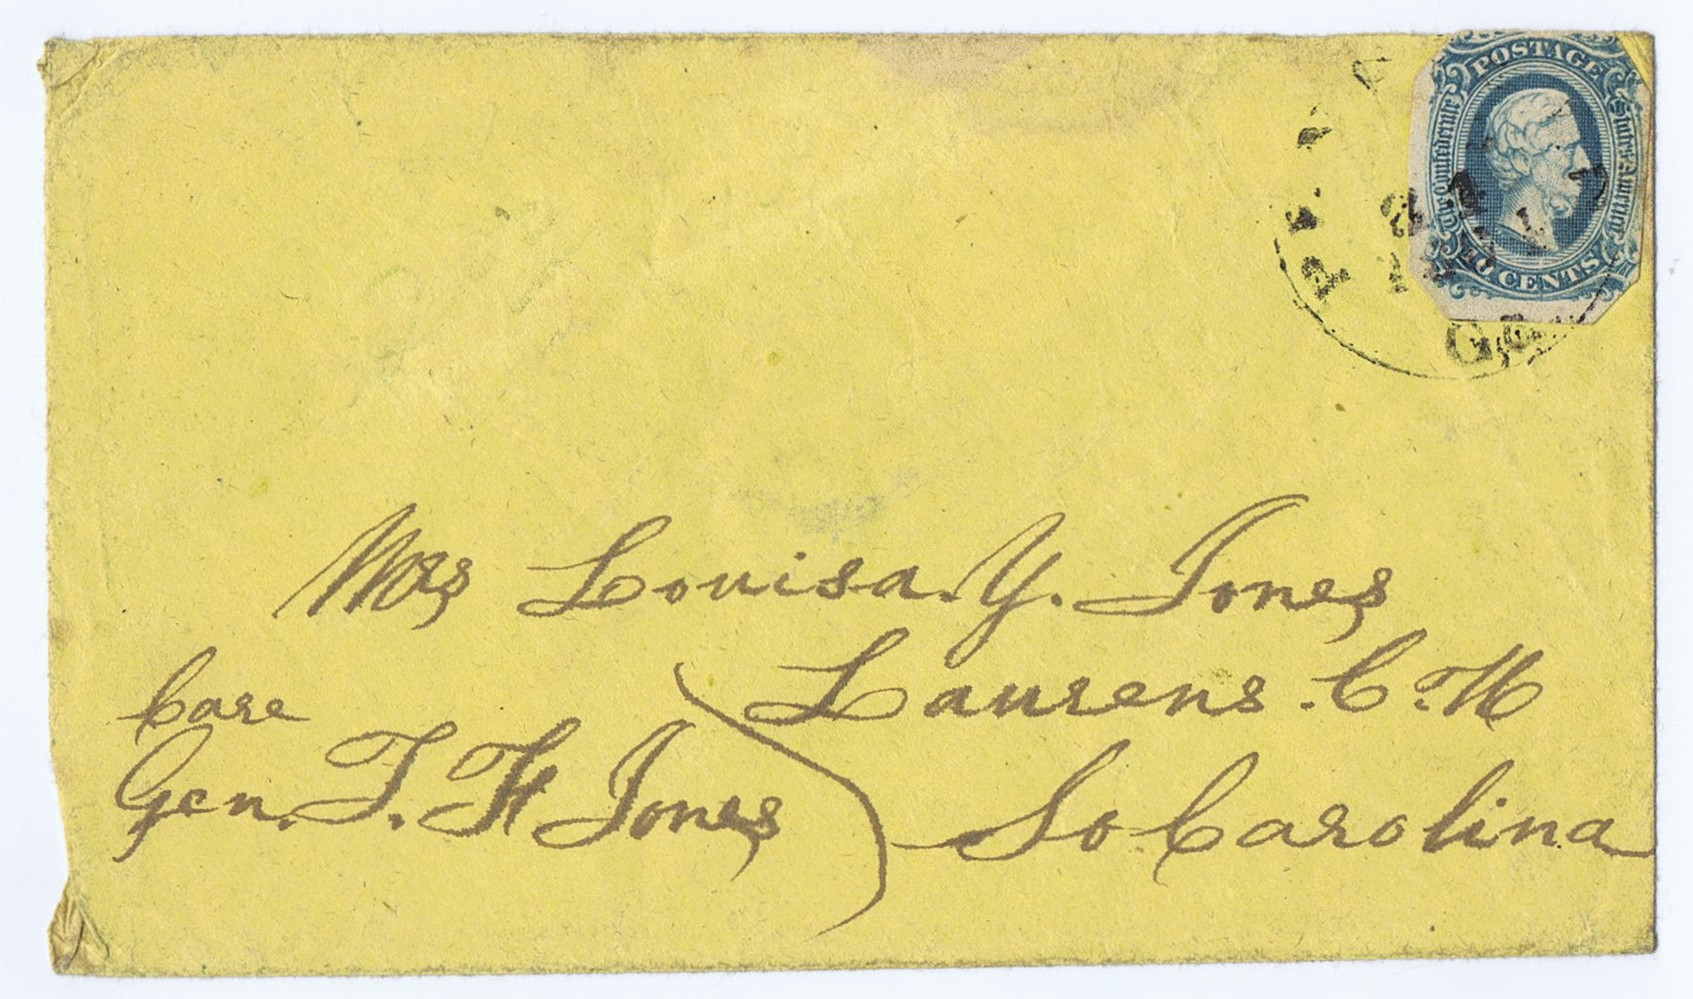 POSTAGE
The Confederate States of America
TEN CENTS
Mrs Louisa. Y. Jones
Laurens. C. H
So Carolina
Care
Gen. T. H Jones